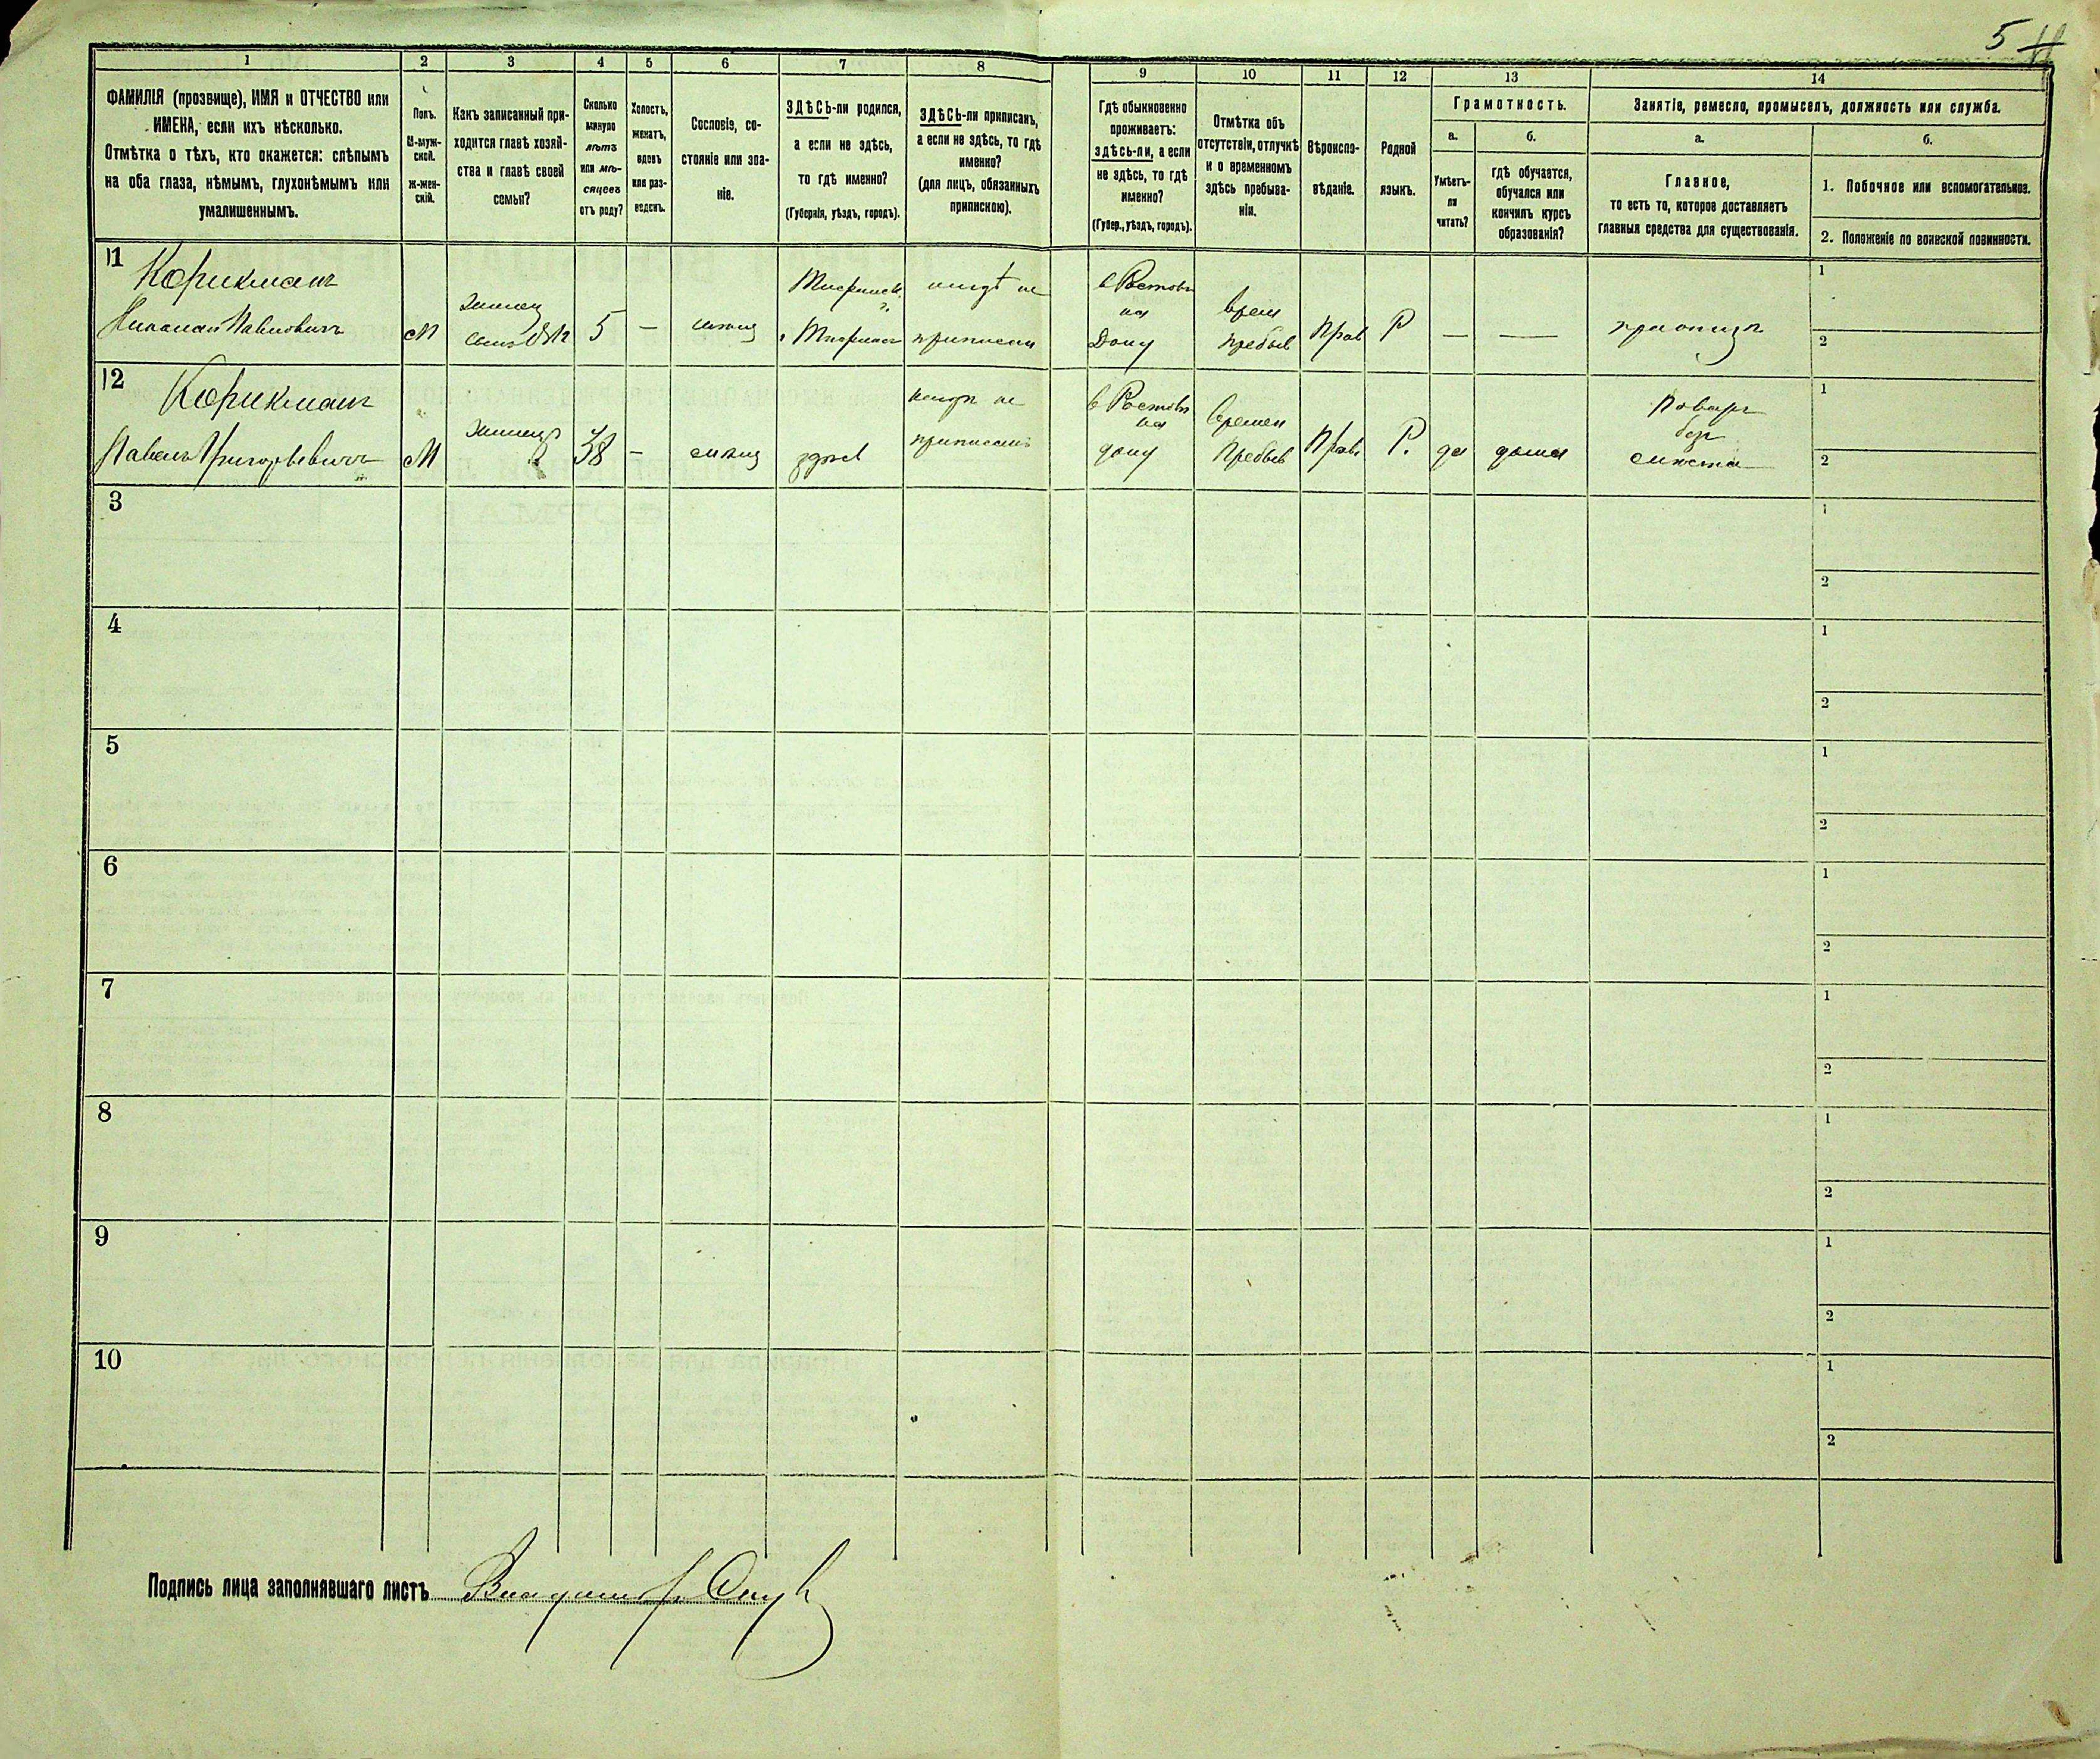 5
1
2
3
4
5
6
7
8
9
10
11
12
13
14
ФАМИЛІЯ (прозвище), ИМЯ и ОТЧЕСТВО или
ИМЕНА, если ихъ нѣсколько.
Отмѣтка о тѣхъ, кто окажется: слѣпымъ
на оба глаза, нѣмымъ, глухонѣмымъ или
умалишеннымъ.
Полъ.
М-муж-
ской.
ж-жен-
скій.
Какъ записанный при-
ходится главѣ хозяй-
ства и главѣ своей
семьи?
Сколько
минуло
лѣтъ
или мѣ-
сяцевъ
отъ роду?
Холостъ,
женатъ,
вдовъ
или раз-
веденъ.
Сословіе, со-
стояніе или зва-
ніе.
ЗДѢСЬ-ли родился,
а если не здѣсь,
то гдѣ именно?
(Губернія, уѣздъ, городъ).
ЗДѢСЬ-ли приписанъ,
а если не здѣсь, то гдѣ
именно?
(для лицъ, обязанныхъ
припискою).
Гдѣ обыкновенно
проживаетъ:
здѣсь-ли, а если
не здѣсь, то гдѣ
именно?
(Губер., уѣздъ, городъ).
Отмѣтка объ
отсутствіи, отлучкѣ
и о временномъ
здѣсь пребыва-
ніи.
Вѣроиспо-
вѣданіе.
Родной
языкъ.
Грамотность.
а.
Умѣетъ-
ли
читать?
б.
гдѣ обучается,
обучался или
кончилъ курсъ
образованія?
Занятіе, ремесло, промыселъ, должность или служба.
а.
Главное,
то есть то, которое доставляетъ
главныя средства для существованія.
б.
1. Побочное или вспомогательное.
2. Положеніе по воинской повинности.
11
Корикманъ
Николай Павловичъ
М
жилец
сынъ
5
—
Тифлисск.
г. Тифлисъ
нигдѣ не
приписан
в Ростовѣ
на
Дону
врем
пребыв
Прав
Р
—
—
при отцѣ
1
2
12
Корикманъ
Павелъ Григорьевичъ
М
жилец
38
—
в Ростовѣ
на
дону
времен
Пребыв
Прав.
Р.
да
дома
Поваръ
безъ
мѣста
1
2
3
1
2
4
1
2
5
1
2
6
1
2
7
1
2
8
1
2
9
1
2
10
1
2
Подпись лица заполнявшаго листъ